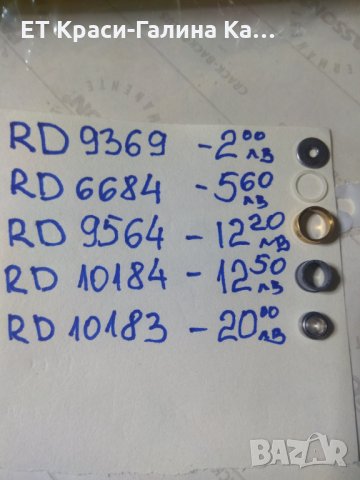 ЕТ Краси-Галина Ка...
RD 9369 - 2⁰⁰ лв
RD 6684 - 5⁶⁰ лв
RD 9564 - 12²⁰ лв
RD 10184 - 12⁵⁰ лв
RD 10183 - 20⁰⁰ лв
BAZAR